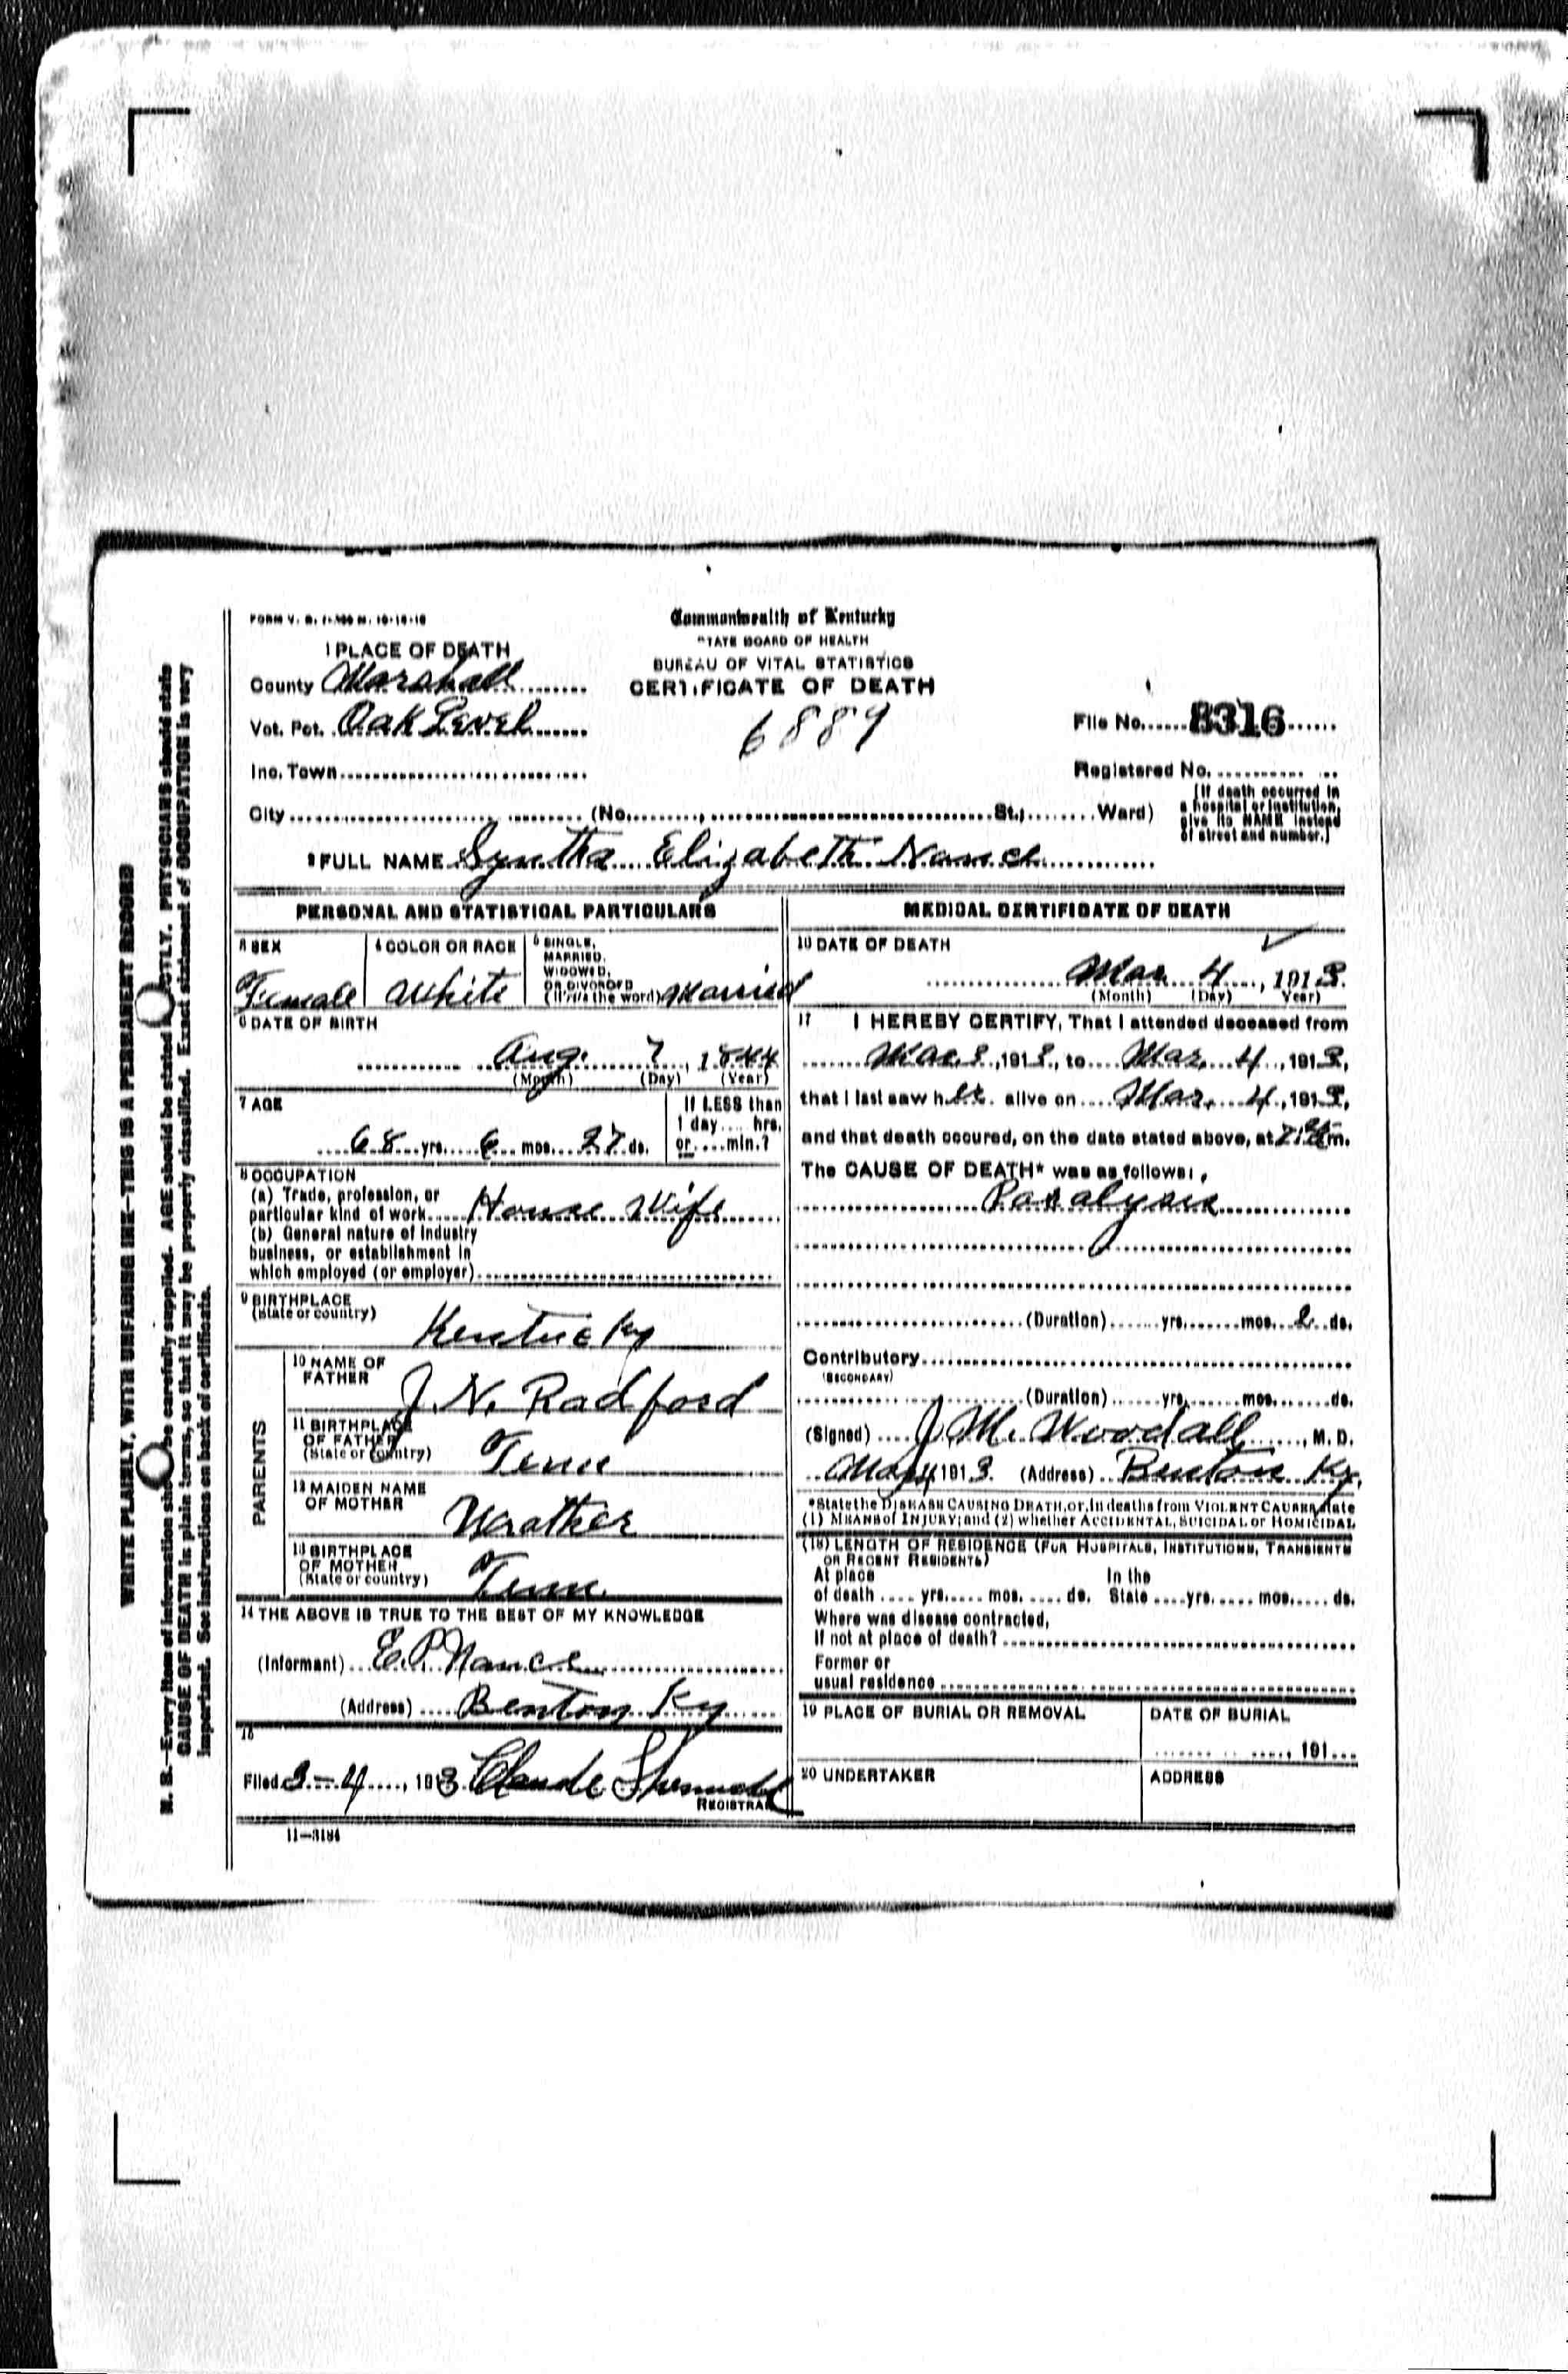 FORM V. S. 1-
Commonwealth of Kentucky
STATE BOARD OF HEALTH
BUREAU OF VITAL STATISTICS
CERTIFICATE OF DEATH
6889
1 PLACE OF DEATH
County Marshall
Vot. Pct. Oak Level
Inc. Town
City (No. St.; Ward)
File No. 8316
Registered No.
(If death occurred in
a hospital or institution,
give its NAME instead
of street and number.)
2 FULL NAME Syntha Elizabeth Nance
PERSONAL AND STATISTICAL PARTICULARS
3 SEX
Female
4 COLOR OR RACE
White
5 SINGLE,
MARRIED,
WIDOWED,
OR DIVORCED
(Write the word) Married
6 DATE OF BIRTH
Aug. 7, 1844
(Month) (Day) (Year)
7 AGE
68 yrs. 6 mos. 27 ds.
If LESS than
1 day.... hrs.
or....min.?
8 OCCUPATION
(a) Trade, profession, or
particular kind of work House Wife
(b) General nature of industry
business, or establishment in
which employed (or employer)
9 BIRTHPLACE
(State or country)
Kentucky
PARENTS
10 NAME OF
FATHER
J. N. Radford
11 BIRTHPLACE
OF FATHER
(State or country)
Tenn
12 MAIDEN NAME
OF MOTHER
Wrather
13 BIRTHPLACE
OF MOTHER
(State or country)
Tenn.
14 THE ABOVE IS TRUE TO THE BEST OF MY KNOWLEDGE
(Informant) E. P. Nance
(Address) Benton Ky
15
Filed 3-4, 1913 Claude
REGISTRAR
11-3184
MEDICAL CERTIFICATE OF DEATH
16 DATE OF DEATH
Mar. 4, 1913.
(Month) (Day) Year)
17 I HEREBY CERTIFY, That I attended deceased from
Mar. 3, 1913, to Mar. 4, 1913,
that I last saw her alive on Mar. 4, 1913,
and that death occured, on the date stated above, at m.
The CAUSE OF DEATH* was as follows:
Paralysis
(Duration) yrs. mos. 2 ds.
Contributory
(SECONDARY)
(Duration) yrs. mos. ds.
(Signed) J. M. Woodall, M. D.
Mar 4 1913. (Address) Benton Ky.
*State the DISEASE CAUSING DEATH, or, in deaths from VIOLENT CAUSES, state
(1) MEANS of INJURY; and (2) whether ACCIDENTAL, SUICIDAL or HOMICIDAL
(18) LENGTH OF RESIDENCE (FOR HOSPITALS, INSTITUTIONS, TRANSIENTS
OR RECENT RESIDENTS)
At place In the
of death .... yrs. .... mos. .... ds. State .... yrs. .... mos. .... ds.
Where was disease contracted,
If not at place of death?
Former or
usual residence
19 PLACE OF BURIAL OR REMOVAL
DATE OF BURIAL
191...
20 UNDERTAKER
ADDRESS
WRITE PLAINLY, WITH UNFADING INK—THIS IS A PERMANENT RECORD
N. B.—Every item of information should be carefully supplied. AGE should be stated EXACTLY. PHYSICIANS should state
CAUSE OF DEATH in plain terms, so that it may be properly classified. Exact statement of OCCUPATION is very
important. See instructions on back of certificate.